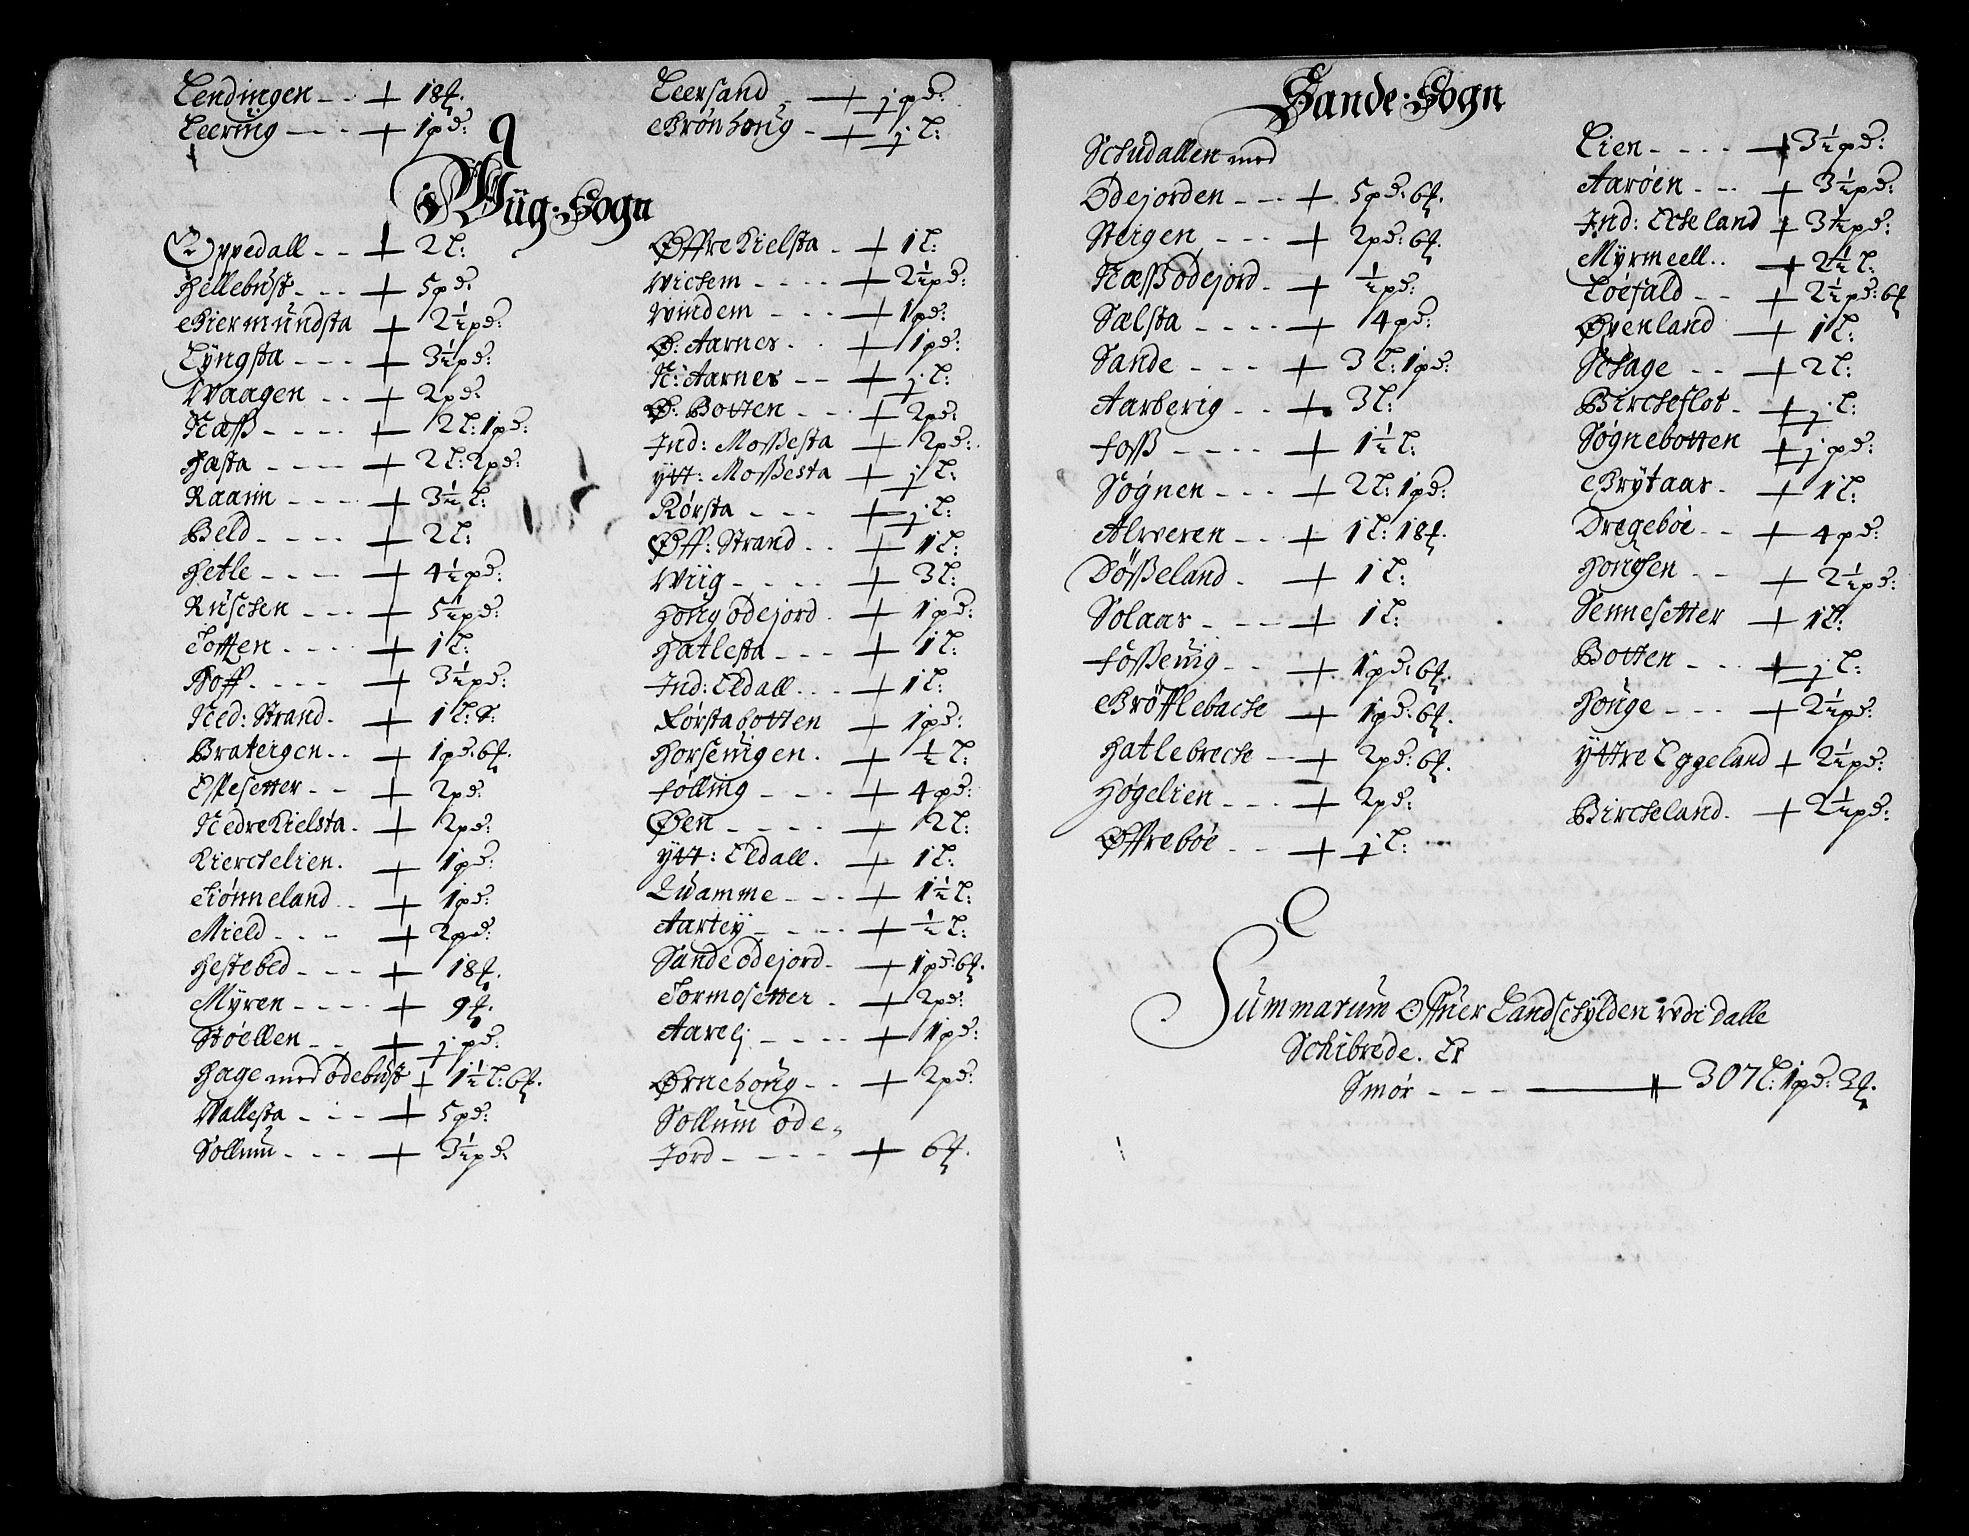 Lendingen - - + 18 ꝉ.
Leering - - - + 1 pd:
Leersand - + j pd:
Grönhoug - + j l:
Wiig: Sogn
Oppedall - - + 2 l:
Hellebust - - - + 5 pd:
Giermundsta + 2½ pd:
Lÿngsta - - - + 3½ pd:
Waagen - - + 2 pd:
Næss - - - - + 2 l: 1 pd:
Hæsta - - - - + 2 l: 2 pd:
Raarim - - - + 3½ l:
Beld - - - - + 2 l:
Hetle - - - - + 4½ pd:
Ruschen - - - + 5½ pd:
Totten - - - - + 1 l:
Hoff - - - - + 3½ pd:
Ned: Strand - + 1 l:
Brateigen - - + 1 pd: 6 ꝉ.
Espesetter - - + 2 pd:
Nedre Kielsta - + 2 pd:
Kierchelien. + 1 pd:
Tiønneland - - + 1 pd:
Mield - - - + 2 pd:
Hestebed - - - + 18 ꝉ.
Mÿren - - - - + 9 ꝉ.
Støellen - - + j pd:
Hage med ødebust + 1½ l: 6 ꝉ.
Wallesta - - - + 5 pd:
Sollum - - - + 3½ pd:
Øffre Kielsta - + 1 l:
Wichem - - - - + 2½ pd:
Windem - - - + 1 pd:
Ø: Aarnes - - + 1 pd:
N: Aarnes - - + j l:
Ø: Botten - - + 2 pd:
Ind: Mossesta + 2 pd:
ÿtt: Mossesta + j l:
Rørsta - - - + j l:
Øff: Strand - - + 1 l:
Wiig - - - - + 3 l:
Houg ødejord - + 1 pd:
Hatlesta - - - + 1 l:
Ind: Eldall - - - + 1 l:
Førstabotten + 1 pd:
Horsevigen. + ½ l:
Følling - - - + 4 pd:
Øen - - - - + 2 l:
ÿtt: Eldall. + 1 l:
Quamme - - - + 1½ l:
Aarteÿ - - - - + ½ l:
Sande ødejord - + 1 pd: 6 ꝉ.
Tormosetter - + 2 pd:
Aarelj - - - - + 1 pd:
Ørnehoug - - + 2 pd:
Sollum øde-
Jord - - - - + 6 ꝉ.
Sande: Sogn
Schudallen med
Ødejorden - - - + 5 pd: 6 ꝉ.
Steigen - - - + 2 pd: 6 ꝉ.
Næssødejord - + ½ pd:
Sælsta - - - - + 4 pd:
Sande - - - + 3 l: 1 pd:
Aarberig - - + 3 l:
Foss - - - - + 1½ l:
Søgnen - - - + 2 l: 1 pd:
Alrveren - - + 1 l: 18 ꝉ.
Dösseland - + 1 l:
Solaas - - - + 1 l:
Fossevig - - + 1 pd: 6 ꝉ.
Grøfflebache + 1 pd: 6 ꝉ.
Hatlebreche - + 2 pd: 6 ꝉ.
Høgelien - - - + 2 pd:
Øffrebøe - - + j l:
Lien - - - - + 3½ pd:
Aarøen - - - + 3½ pd:
Ind: Echeland + 3½ pd:
Mÿrmeell. . + 2½ l:
Løefald - - + 2½ pd: 6 ꝉ
Øvenland - + 1 l:
Schage - - + 2 l:
Bircheflot - + j l:
Søgnebotten + j pd:
Grÿtaas - + 1 l:
Dregebøe - - + 4 pd:
Hougen - - + 2½ pd:
Sennesetter + 1 l:
Botten - - - + j l:
Houge - - - + 2½ pd:
ÿttre Eggeland + 2½ pd:
Bircheland - + 2½ pd:
Summarum Offuer Landschÿlden udi dalle
Schibrede. Er
Smør - - - 307 l: 1 pd: 2 ꝉ.